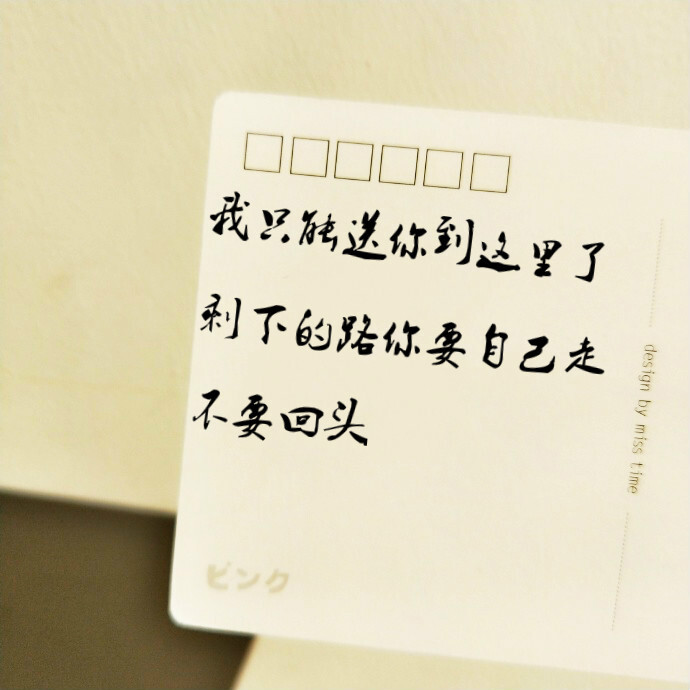 我只能送你到这里了
剩下的路你要自己走
不要回头
design by miss time
ピンク